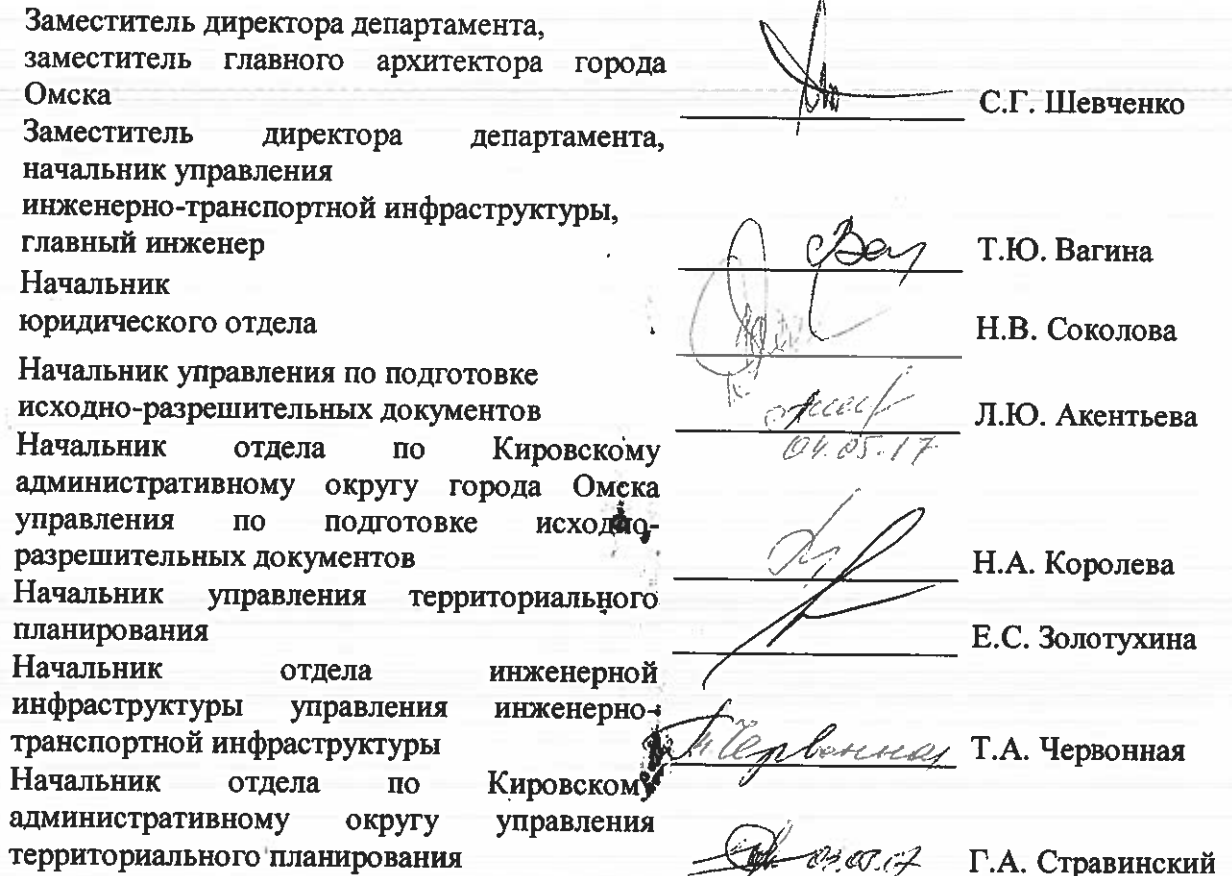 Заместитель директора департамента,
заместитель главного архитектора города
Омска
С.Г. Шевченко
Заместитель директора департамента,
начальник управления
инженерно-транспортной инфраструктуры,
главный инженер
Т.Ю. Вагина
Начальник
юридического отдела
Н.В. Соколова
Начальник управления по подготовке
исходно-разрешительных документов
Л.Ю. Акентьева
04.05.17
Начальник отдела по Кировскому
административному округу города Омска
управления по подготовке исходно-
разрешительных документов
Н.А. Королева
Начальник управления территориального
планирования
Е.С. Золотухина
Начальник отдела инженерной
инфраструктуры управления инженерно-
транспортной инфраструктуры
Червонная
Т.А. Червонная
Начальник отдела по Кировскому
административному округу управления
территориального планирования
Г.А. Стравинский